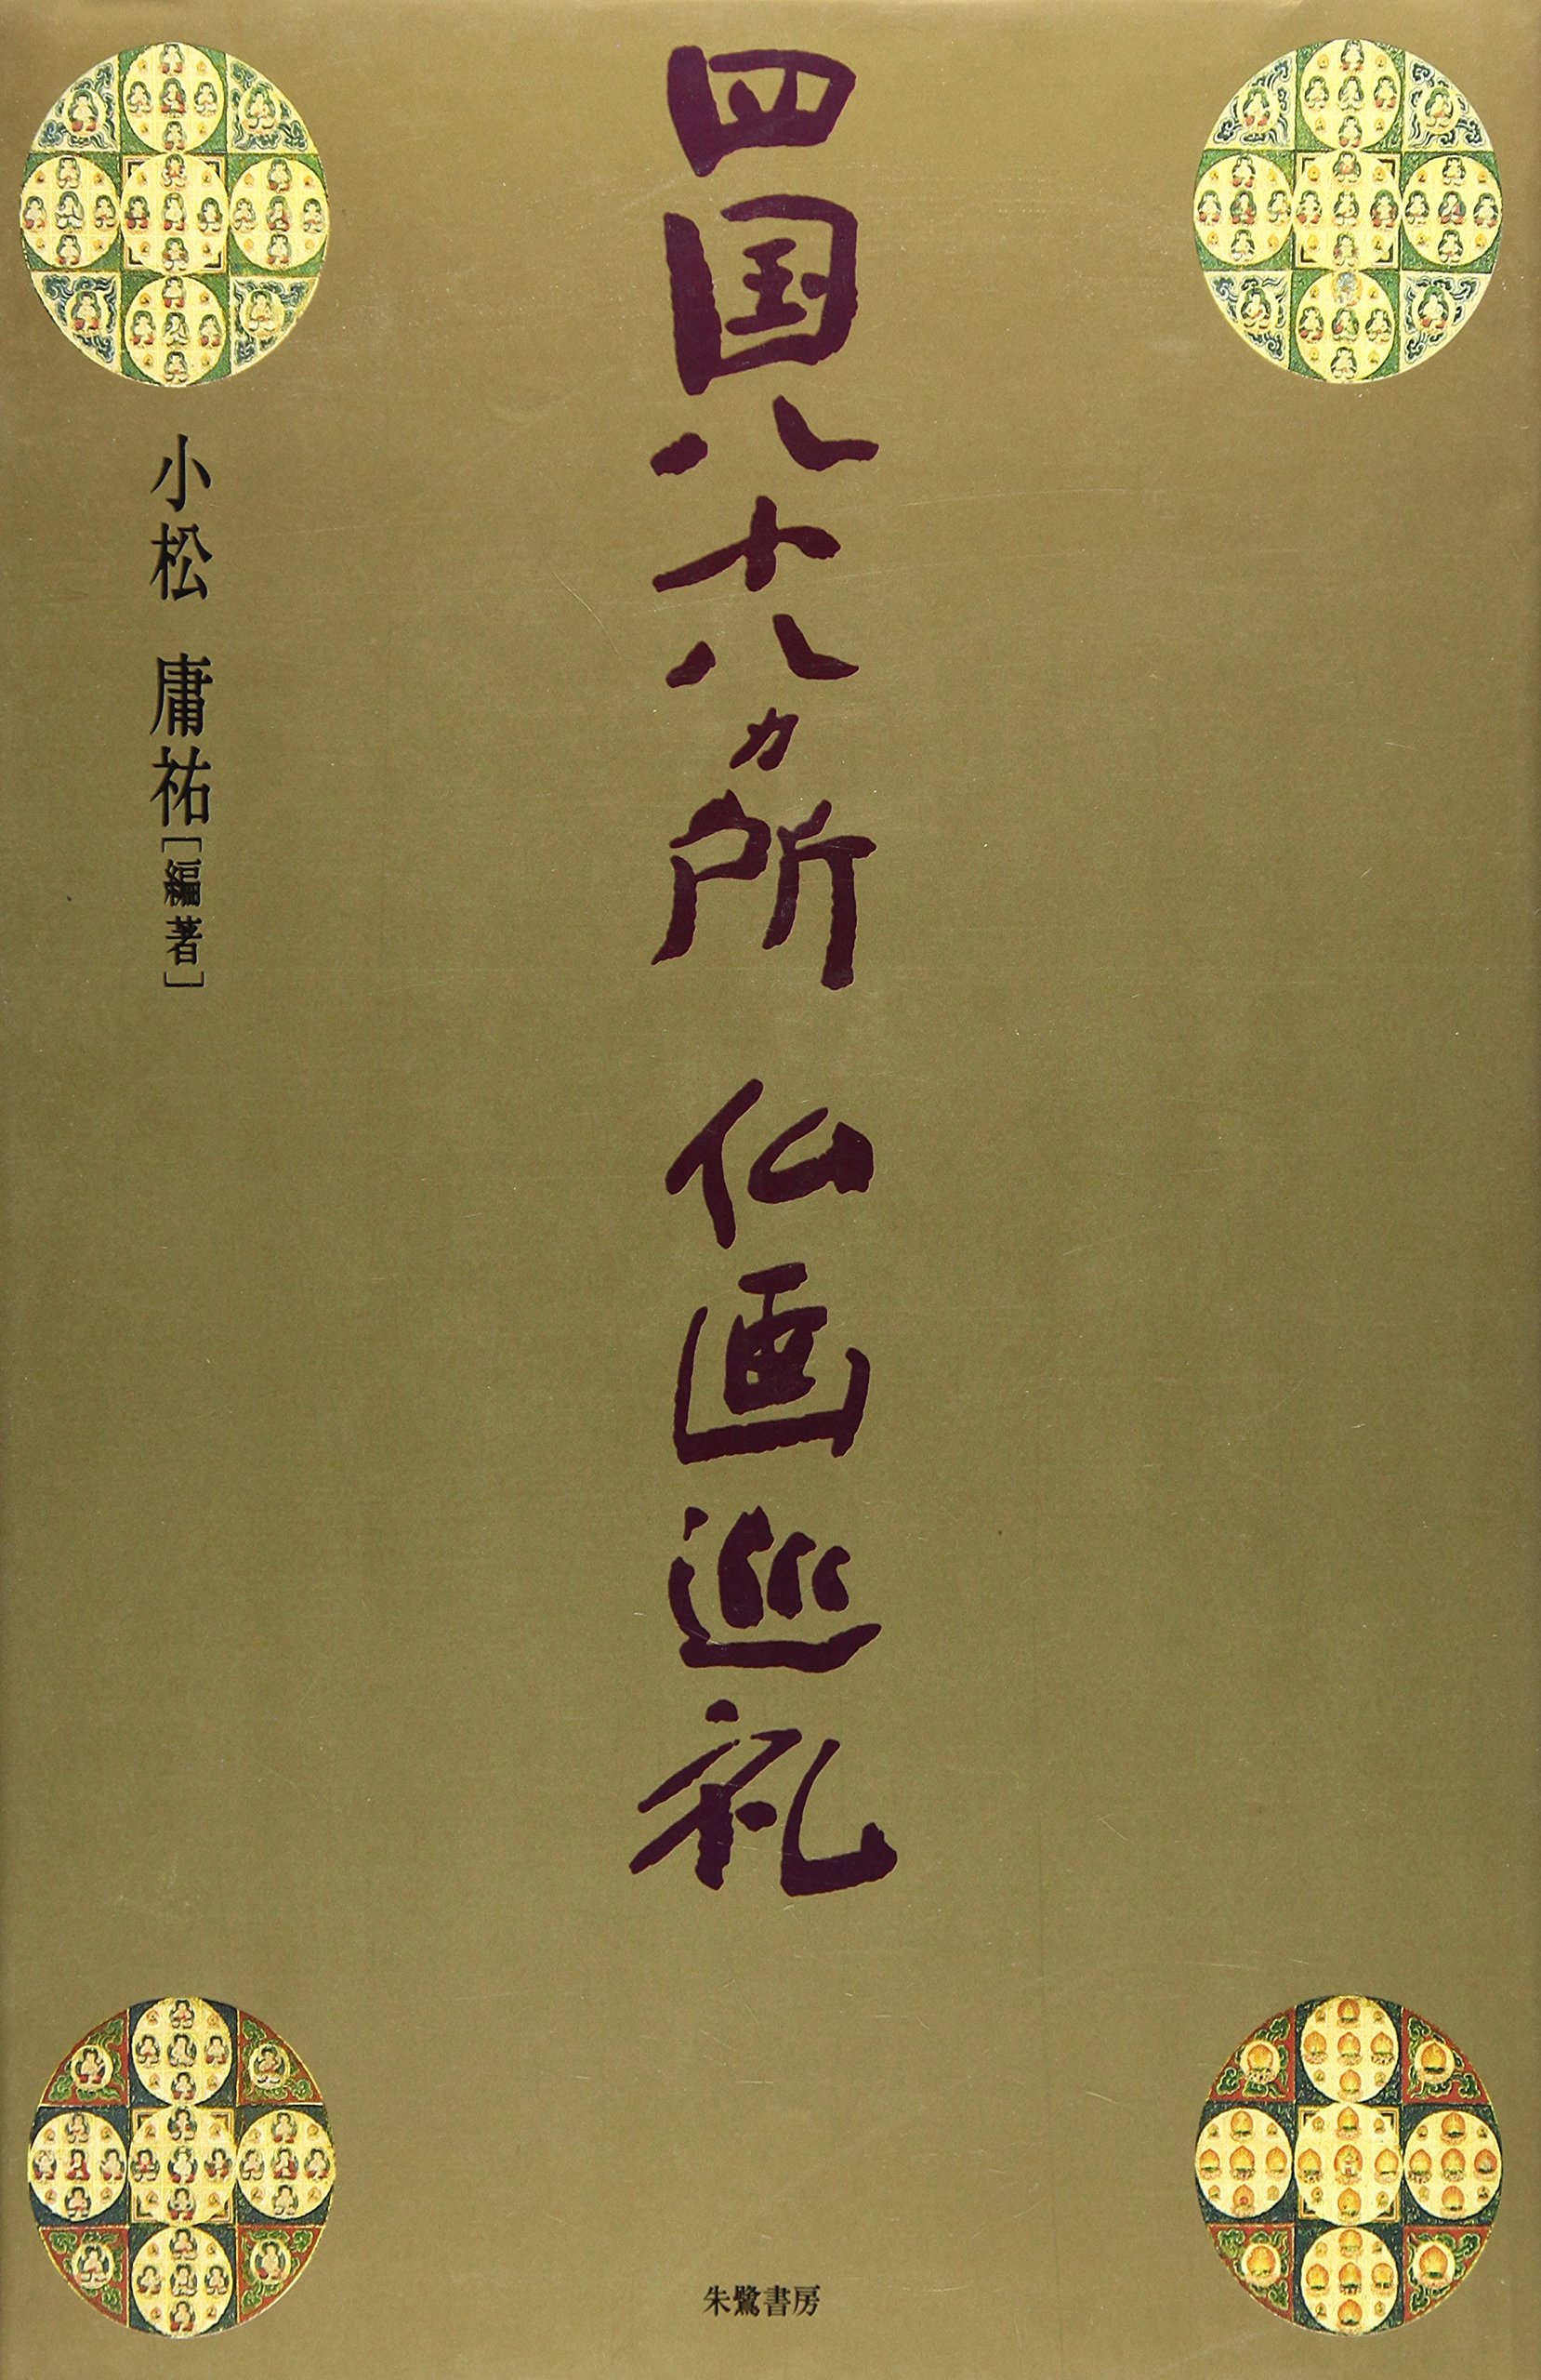 四国八十八ヵ所 仏画巡礼
小松 庸祐[編著]
朱鷺書房